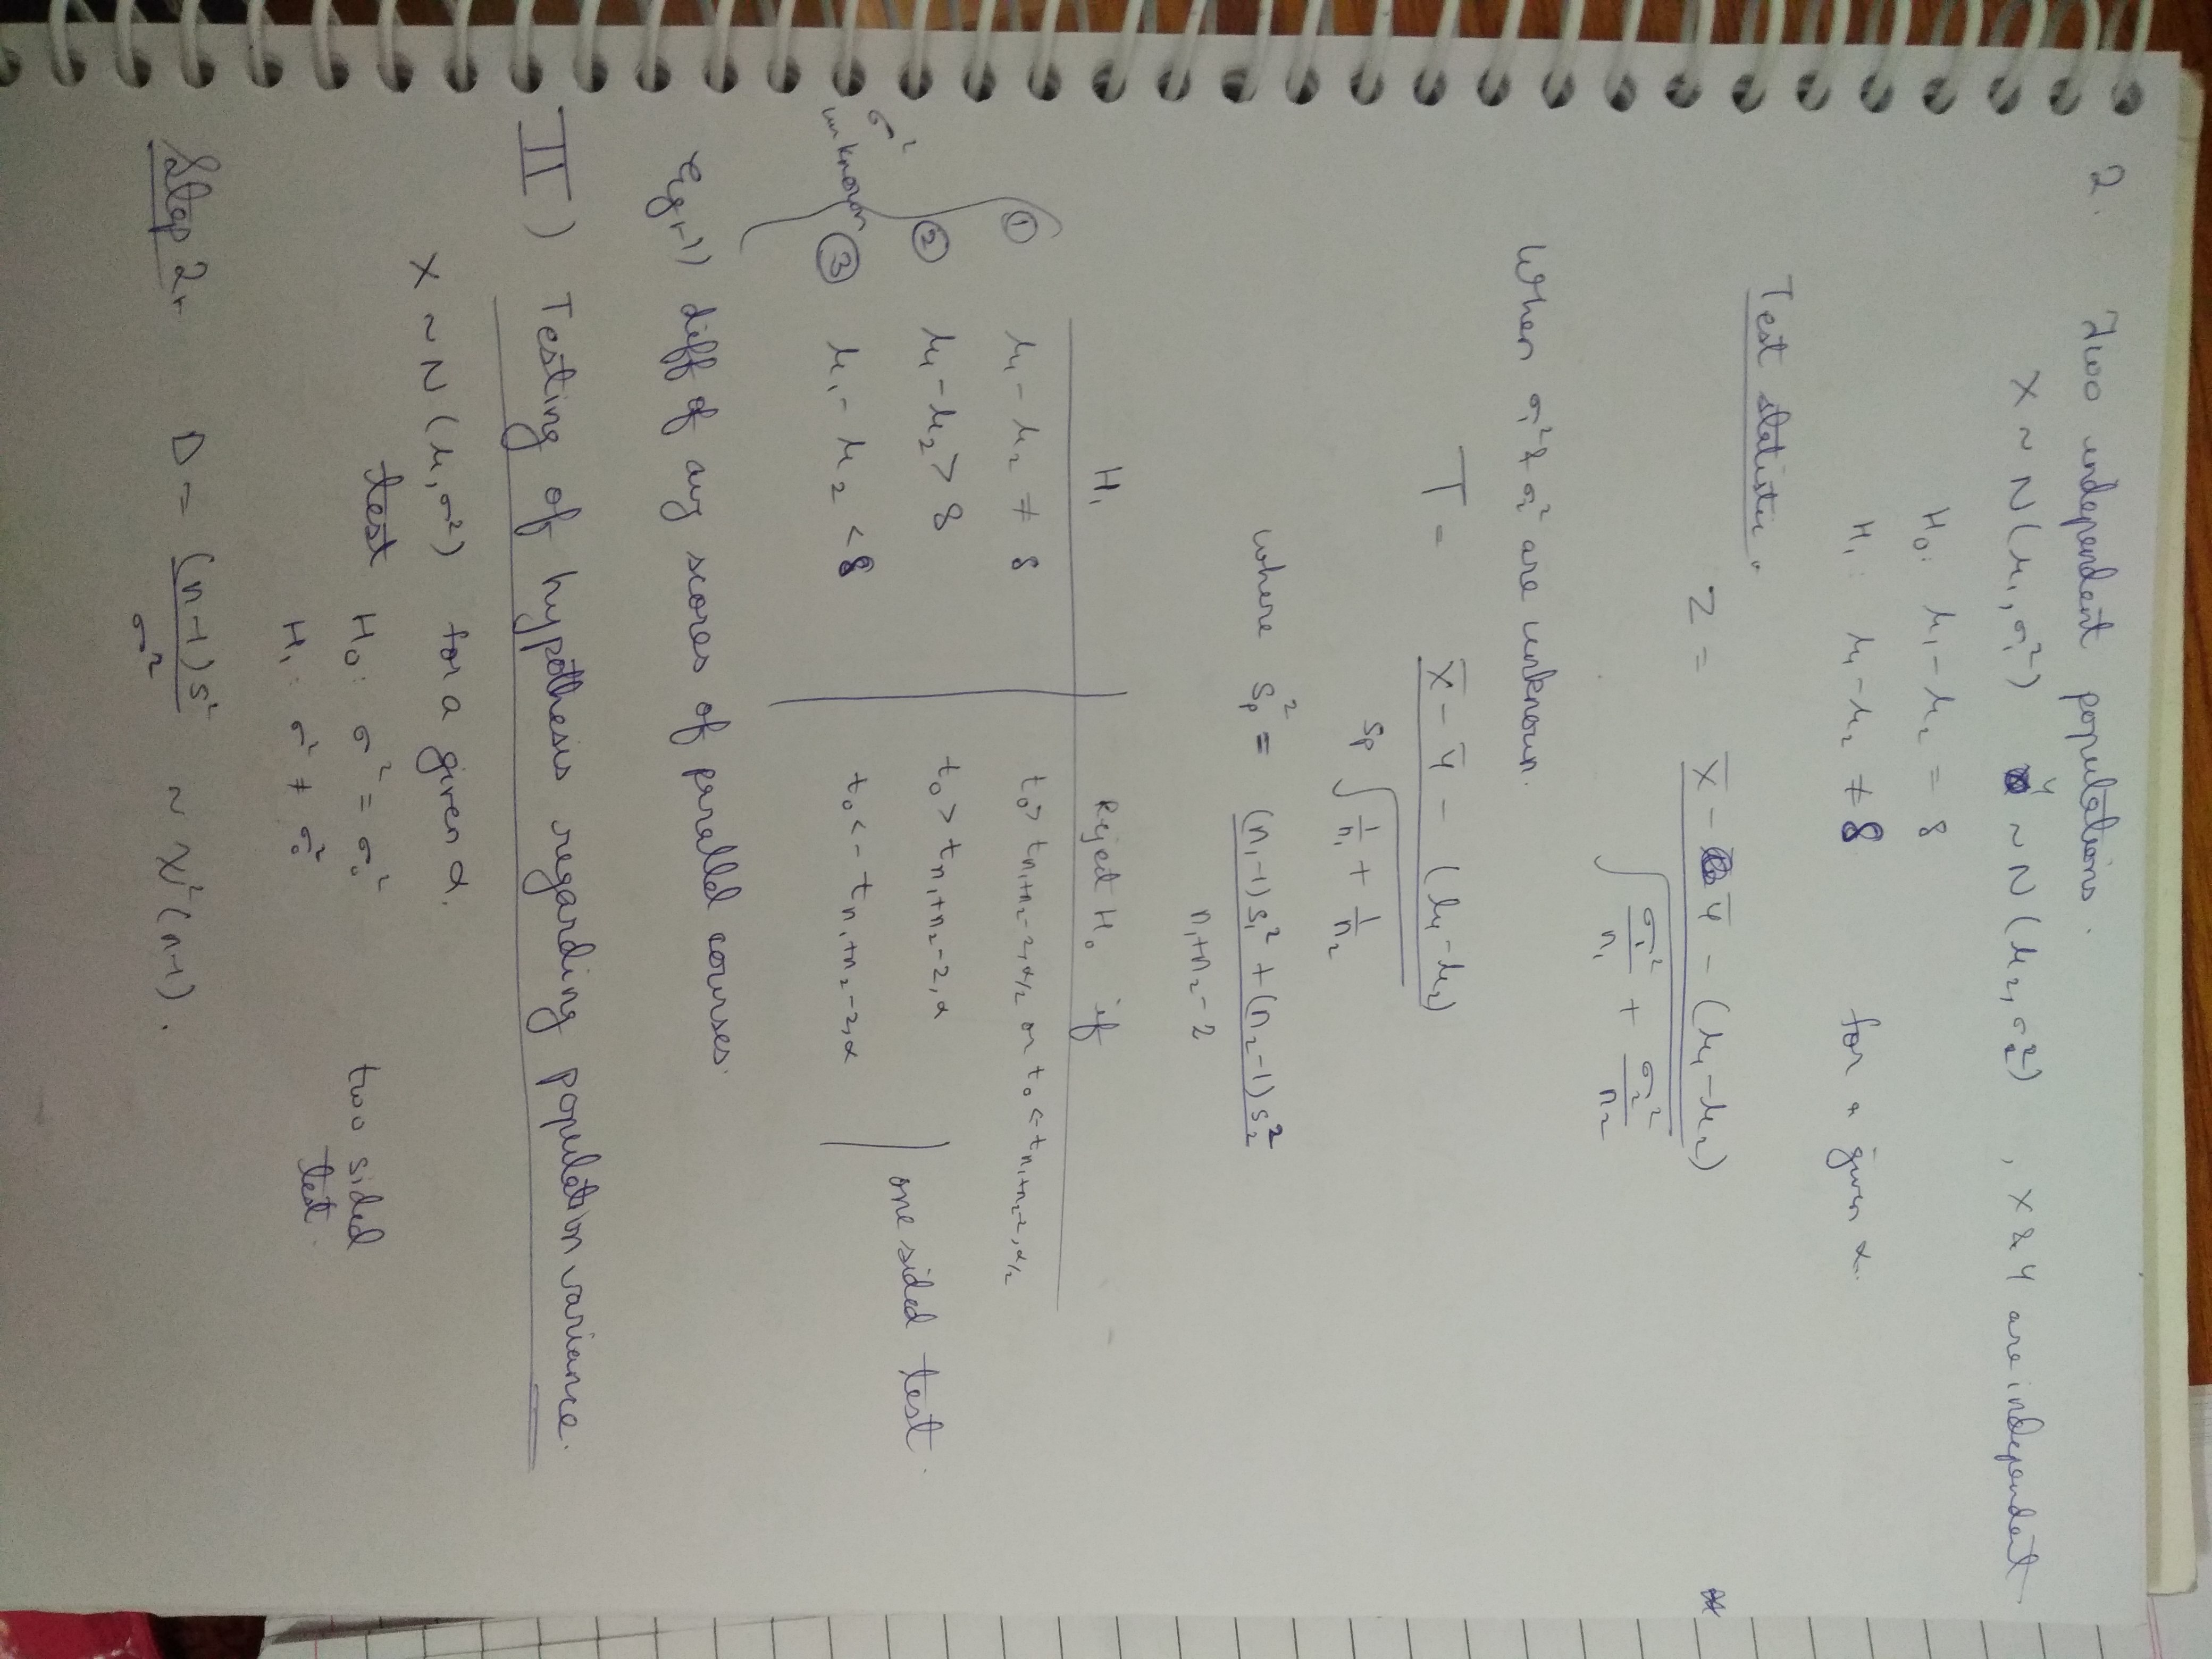 2. Two independent populations.
X ~ N(μ₁, σ₁²) Y ~ N(μ₂, σ₂²), X & Y are independent
H₀: μ₁ - μ₂ = δ
H₁: μ₁ - μ₂ ≠ δ for a given α.
Test statistic
Z = (X̄ - Ȳ - (μ₁ - μ₂)) / √(σ₁²/n₁ + σ₂²/n₂)
When σ₁² & σ₂² are unknown.
T = (X̄ - Ȳ - (μ₁ - μ₂)) / (Sp √(1/n₁ + 1/n₂))
where Sp² = ((n₁-1)s₁² + (n₂-1)s₂²) / (n₁+n₂-2)
H₁ Reject H₀ if
① μ₁ - μ₂ ≠ δ t₀ > t n₁+n₂-2, α/2 or t₀ < -t n₁+n₂-2, α/2
② μ₁ - μ₂ > δ t₀ > t n₁+n₂-2, α
σ² unknown ③ μ₁ - μ₂ < δ t₀ < - t n₁+n₂-2, α
one sided test.
Eg 1) diff of avg scores of parallel courses.
II) Testing of hypothesis regarding population variance.
X ~ N(μ, σ²) for a given α.
test H₀: σ² = σ₀²
H₁: σ² ≠ σ₀²
two sided
test.
Step 2 D = (n-1)s² / σ² ~ χ²(n-1).